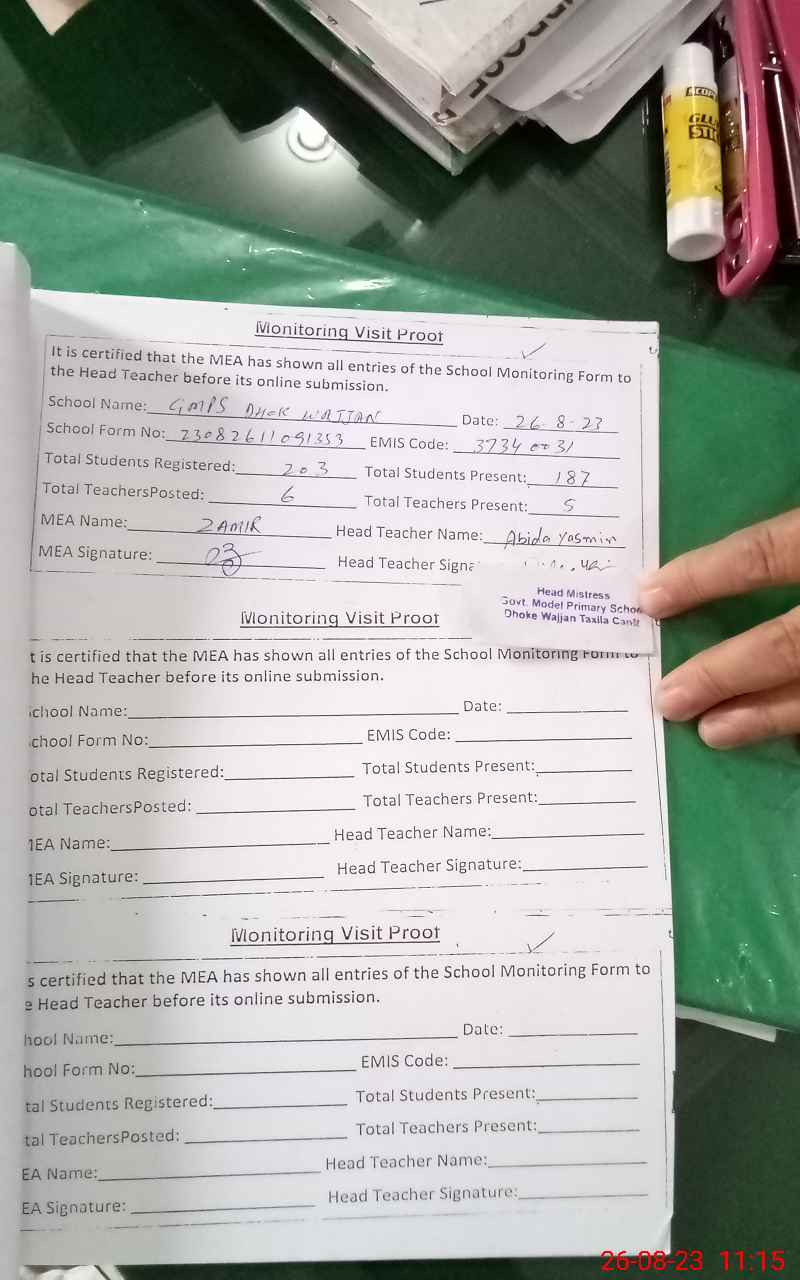 PURPOSE
GLUE
STIC
Monitoring Visit Proof
It is certified that the MEA has shown all entries of the School Monitoring Form to
the Head Teacher before its online submission.
School Name: GMPS DHOK WAJJAN Date: 26-8-23
School Form No: 23082611091353 EMIS Code: 37340031
Total Students Registered: 203 Total Students Present: 187
Total TeachersPosted: 6 Total Teachers Present: 5
MEA Name: ZAMIR Head Teacher Name: Abida Yasmin
MEA Signature: Head Teacher Signa
Head Mistress
Govt. Model Primary School
Dhoke Wajjan Taxila Cantt
Monitoring Visit Proof
t is certified that the MEA has shown all entries of the School Monitoring Form to
he Head Teacher before its online submission.
chool Name: Date:
chool Form No: EMIS Code:
otal Students Registered: Total Students Present:
otal TeachersPosted: Total Teachers Present:
MEA Name: Head Teacher Name:
MEA Signature: Head Teacher Signature:
Monitoring Visit Proof
s certified that the MEA has shown all entries of the School Monitoring Form to
e Head Teacher before its online submission.
hool Name: Date:
hool Form No: EMIS Code:
tal Students Registered: Total Students Present:
tal TeachersPosted: Total Teachers Present:
EA Name: Head Teacher Name:
EA Signature: Head Teacher Signature:
26-08-23 11:15